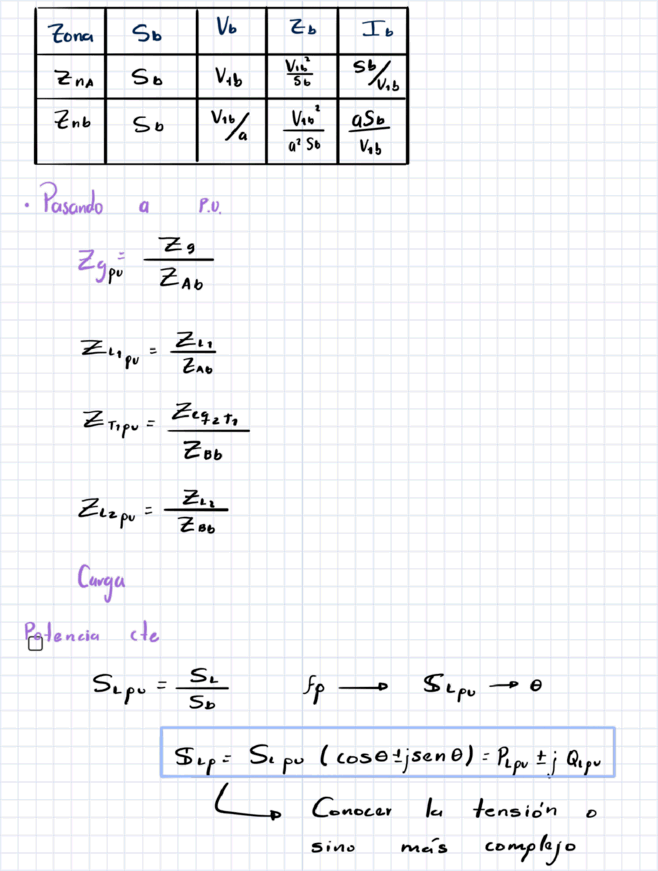 Zona Sb Vb Zb Ib
ZnA Sb V1b V1b²/Sb Sb/V1b
Znb Sb V1b/a V1b²/a² Sb aSb/V1b
· Pasando a P.U.
Zgpu = Zg/ZAb
ZL1pu = ZL1/ZAb
ZT1pu = Zeq2T1/ZBb
ZL2pu = ZL2/ZBb
Carga
Potencia cte
SLpu = SL/Sb fp → $Lpu → θ
$Lp = SLpu (cosθ ± jsenθ) = PLpu ± j QLpu
→ Conocer la tensión o
sino más complejo